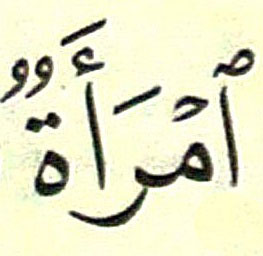 ٱمْرَأَةٌ